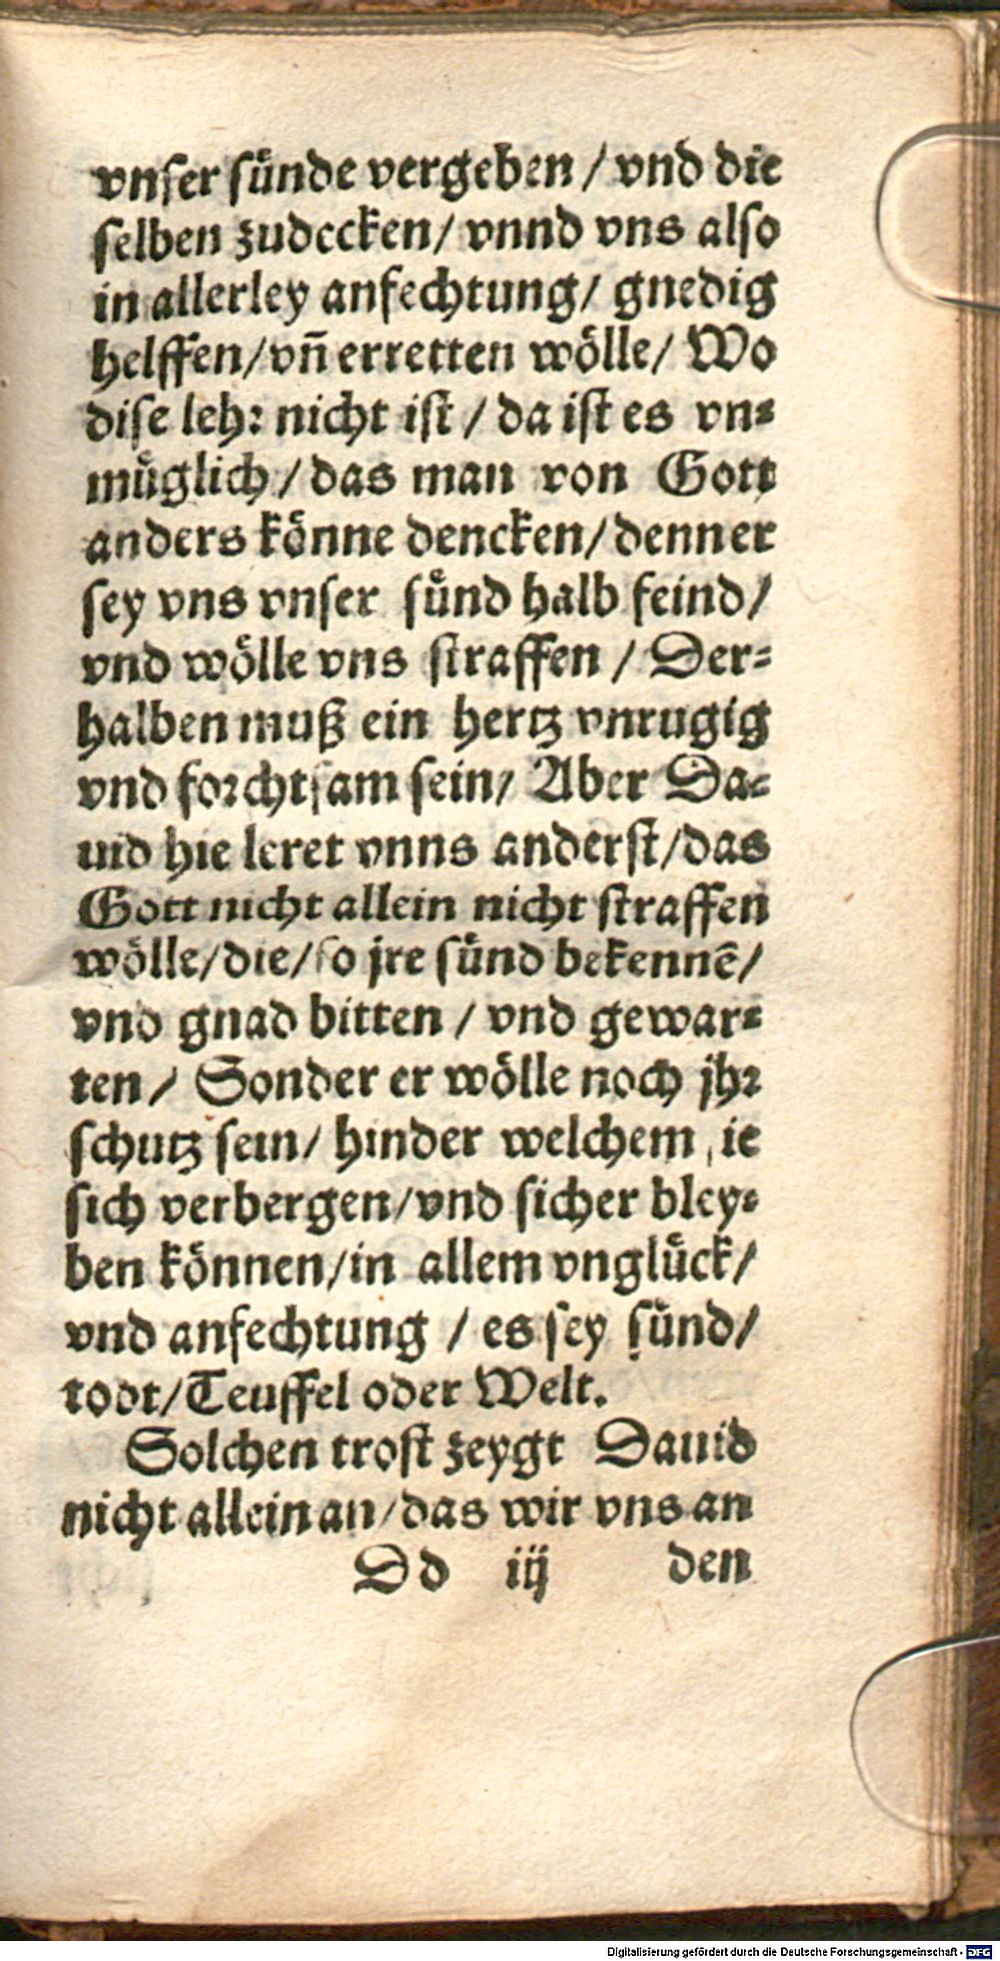 vnser sünde vergeben / vnd die
selben zudecken / vnnd vns also
in allerley anfechtung / gnedig
helffen / vn̄ erretten wölle / Wo
dise lehr nicht ist / da ist es vn⸗
müglich / das man von Gott
anders könne dencken / denn er
sey vns vnser sünd halb feind /
vnd wölle vns straffen / Der⸗
halben muß ein hertz vnrugig
vnd forchtsam sein / Aber Da⸗
uid hie leret vnns anderst / das
Gott nicht allein nicht straffen
wölle / die / so jre sünd bekennē /
vnd gnad bitten / vnd gewar⸗
ten / Sonder er wölle noch jhr
schutz sein / hinder welchem sie
sich verbergen / vnd sicher bley⸗
ben können / in allem vnglück /
vnd anfechtung / es sey sünd /
todt / Teuffel oder Welt.
Solchen trost zeygt Dauid
nicht allein an / das wir vns an
Dd iij den
Digitalisierung gefördert durch die Deutsche Forschungsgemeinschaft - DFG